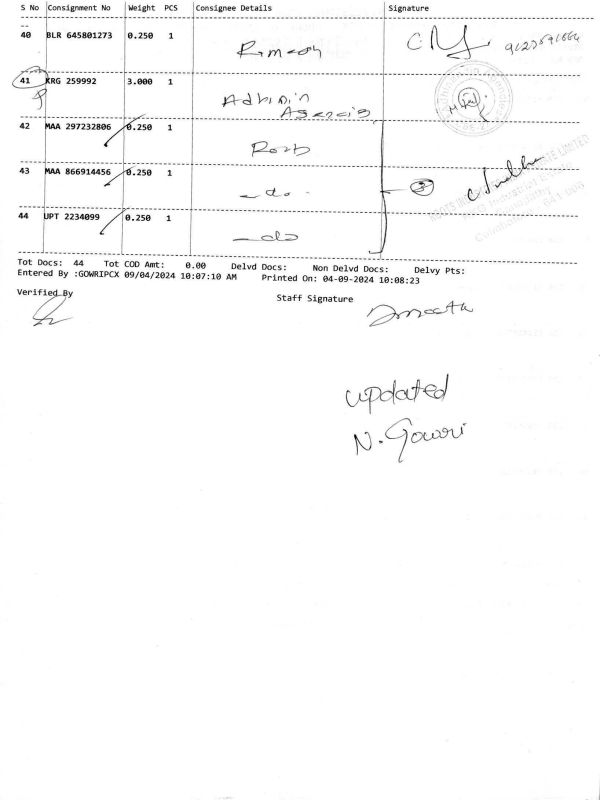 S No Consignment No Weight PCS Consignee Details Signature
--
40 BLR 645801273 0.250 1 Ramesh
41 KRG 259992 3.000 1
Agencies
42 MAA 297232806 0.250 1 Roots
43 MAA 866914456 0.250 1 -do-
44 UPT 2234099 0.250 1 -do
Tot Docs: 44 Tot COD Amt: 0.00 Delvd Docs: Non Delvd Docs: Delvy Pts:
Entered By :GOWRIPCX 09/04/2024 10:07:10 AM Printed On: 04-09-2024 10:08:23
Verified By
Staff Signature
updated
N. Gowri